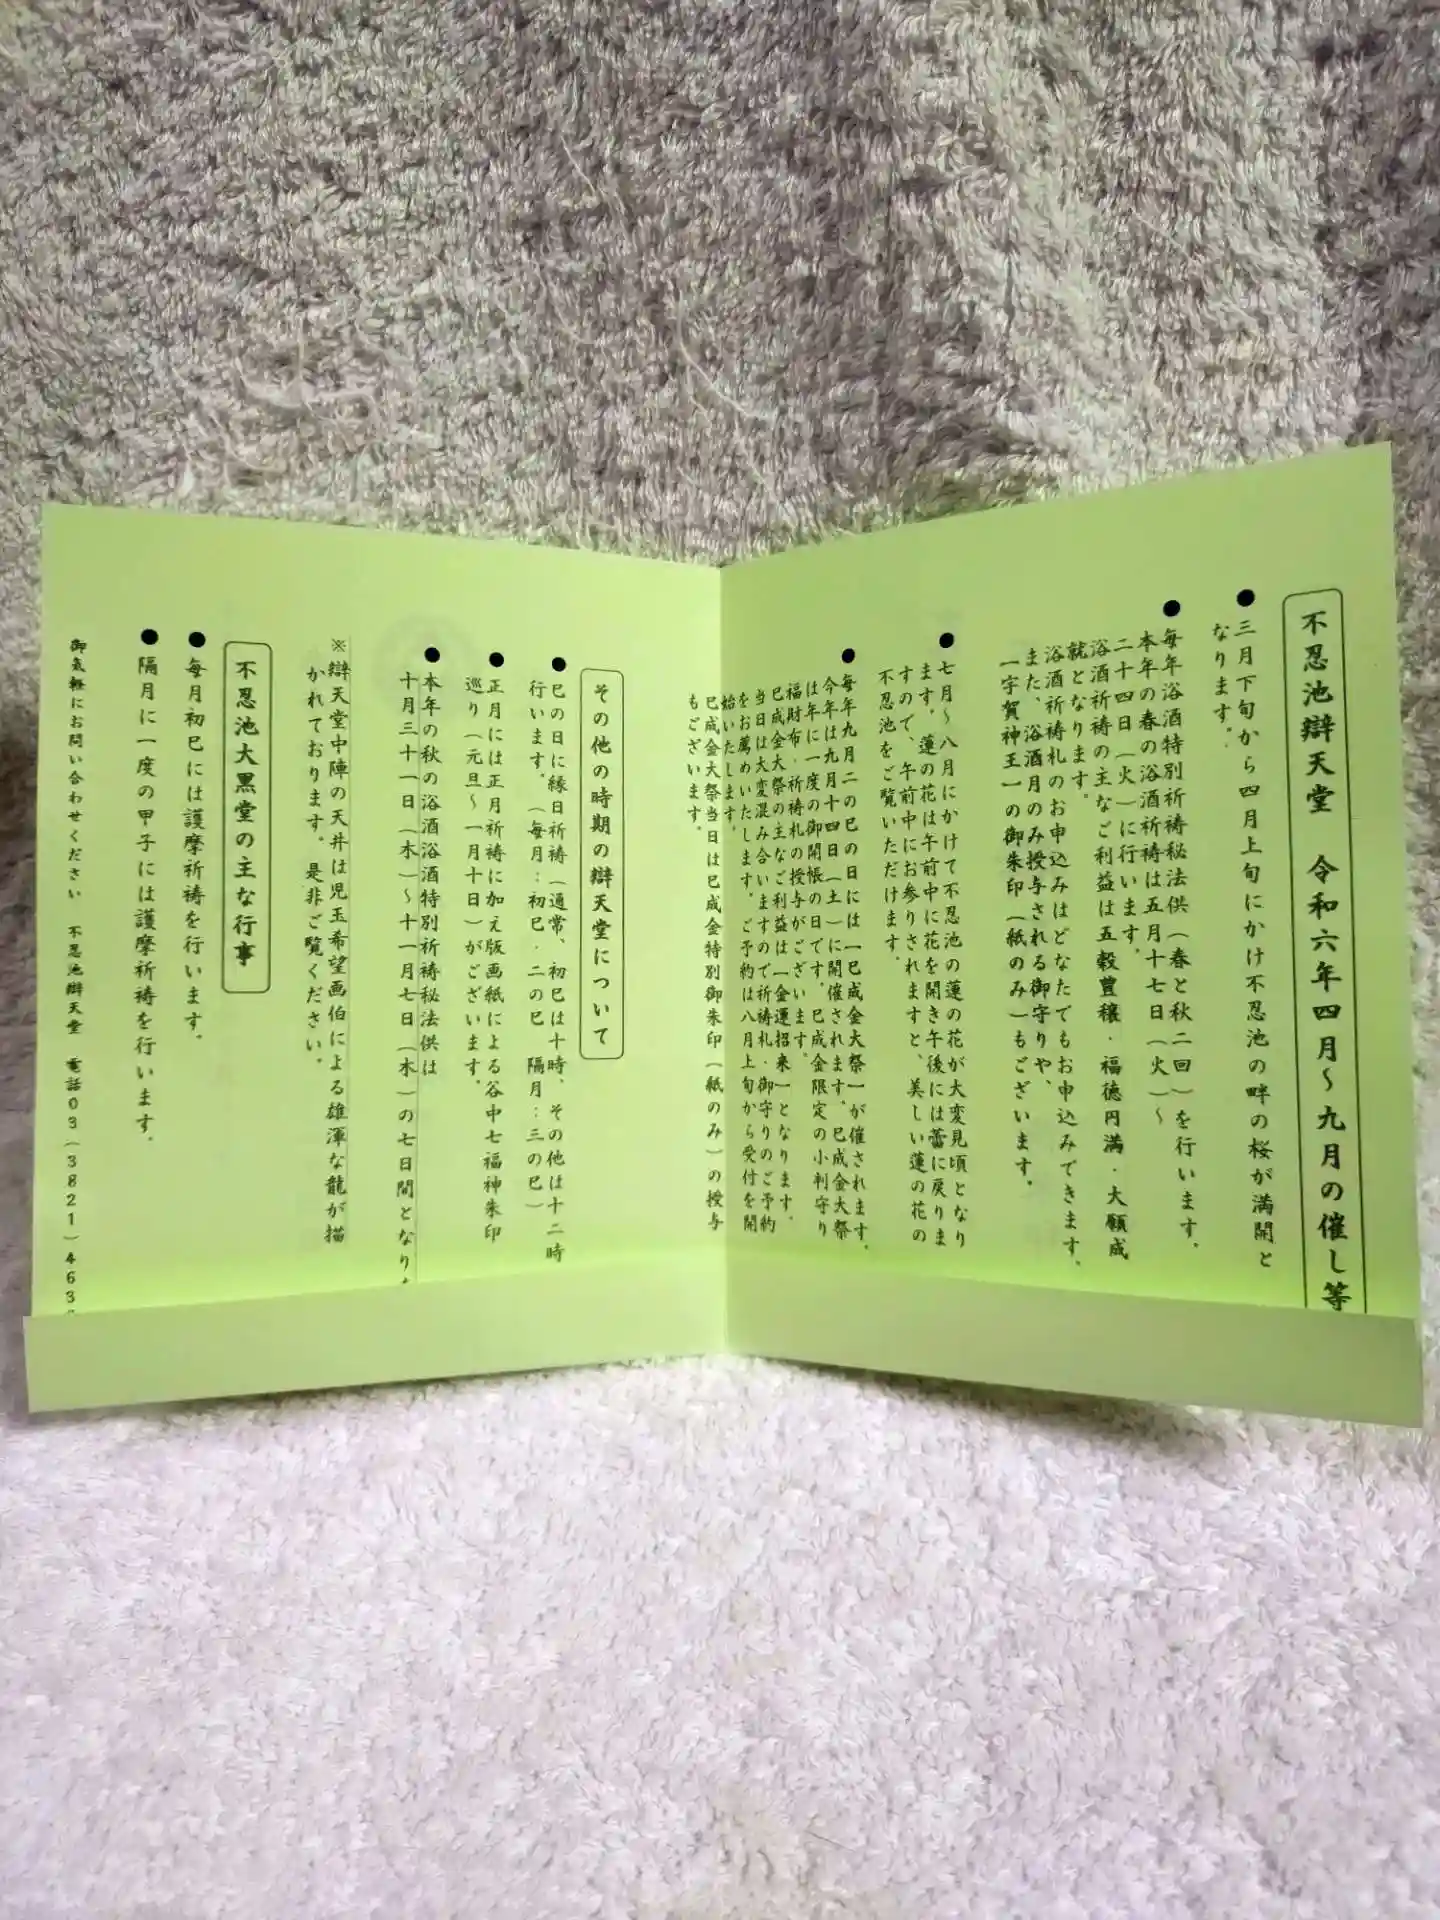 不忍池辯天堂　令和六年四月〜九月の催し等
●三月下旬から四月上旬にかけ不忍池の畔の桜が満開と
なります。
●毎年浴酒特別祈祷秘法供（春と秋二回）を行います。
本年の春の浴酒祈祷は五月十七日（火）〜
二十四日（火）に行います。
浴酒祈祷の主なご利益は五穀豊穣・福徳円満・大願成
就となります。
浴酒祈祷札のお申込みはどなたでもお申込みできます。
また、浴酒月のみ授与される御守りや、
「宇賀神王」の御朱印（紙のみ）もございます。
●七月〜八月にかけて不忍池の蓮の花が大変見頃となり
ます。蓮の花は午前中に花を開き午後には蕾に戻りま
すので、午前中にお参りされますと、美しい蓮の花の
不忍池をご覧いただけます。
●毎年九月二の巳の日には「巳成金大祭」が催されます。
今年は九月十四日（土）に開催されます。巳成金大祭
は年に一度の御開帳の日です。巳成金限定の小判守り
福財布・祈祷札の授与がございます。
巳成金大祭の主なご利益は「金運招来」となります。
当日は大変混み合いますので祈祷札・御守りのご予約
をお薦めいたします。ご予約は八月上旬から受付を開
始いたします。
巳成金大祭当日は巳成金特別御朱印（紙のみ）の授与
もございます。
その他の時期の辯天堂について
●巳の日に縁日祈祷（通常、初巳は十時、その他は十二時
行います。（毎月：初巳・二の巳　隔月：三の巳）
●正月には正月祈祷に加え版画紙による谷中七福神朱印
巡り（元旦〜一月十日）がございます。
●本年の秋の浴酒浴酒特別祈祷秘法供は
十月三十一日（木）〜十一月七日（木）の七日間となり
※辯天堂中陣の天井は児玉希望画伯による雄渾な龍が描
かれております。是非ご覧ください。
不忍池大黒堂の主な行事
●毎月初巳には護摩祈祷を行います。
●隔月に一度の甲子には護摩祈祷を行います。
御気軽にお問い合わせください　不忍池辯天堂　電話０３（３８２１）４６３